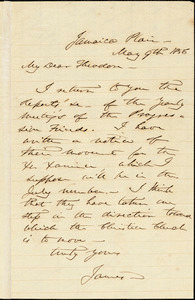 Jamaica Plain —
May 9th 1856
My Dear Theodore —
I return to you the
reports &c — of the Yearly
Meetings of the Progres-
sive Friends. I have
written a notice of
their movement for the
Xn Examiner which I
suppose will be in the
July number. — I think
that they have taken one
step in the direction toward
which the Christian Church
is to move —
truly yours
James